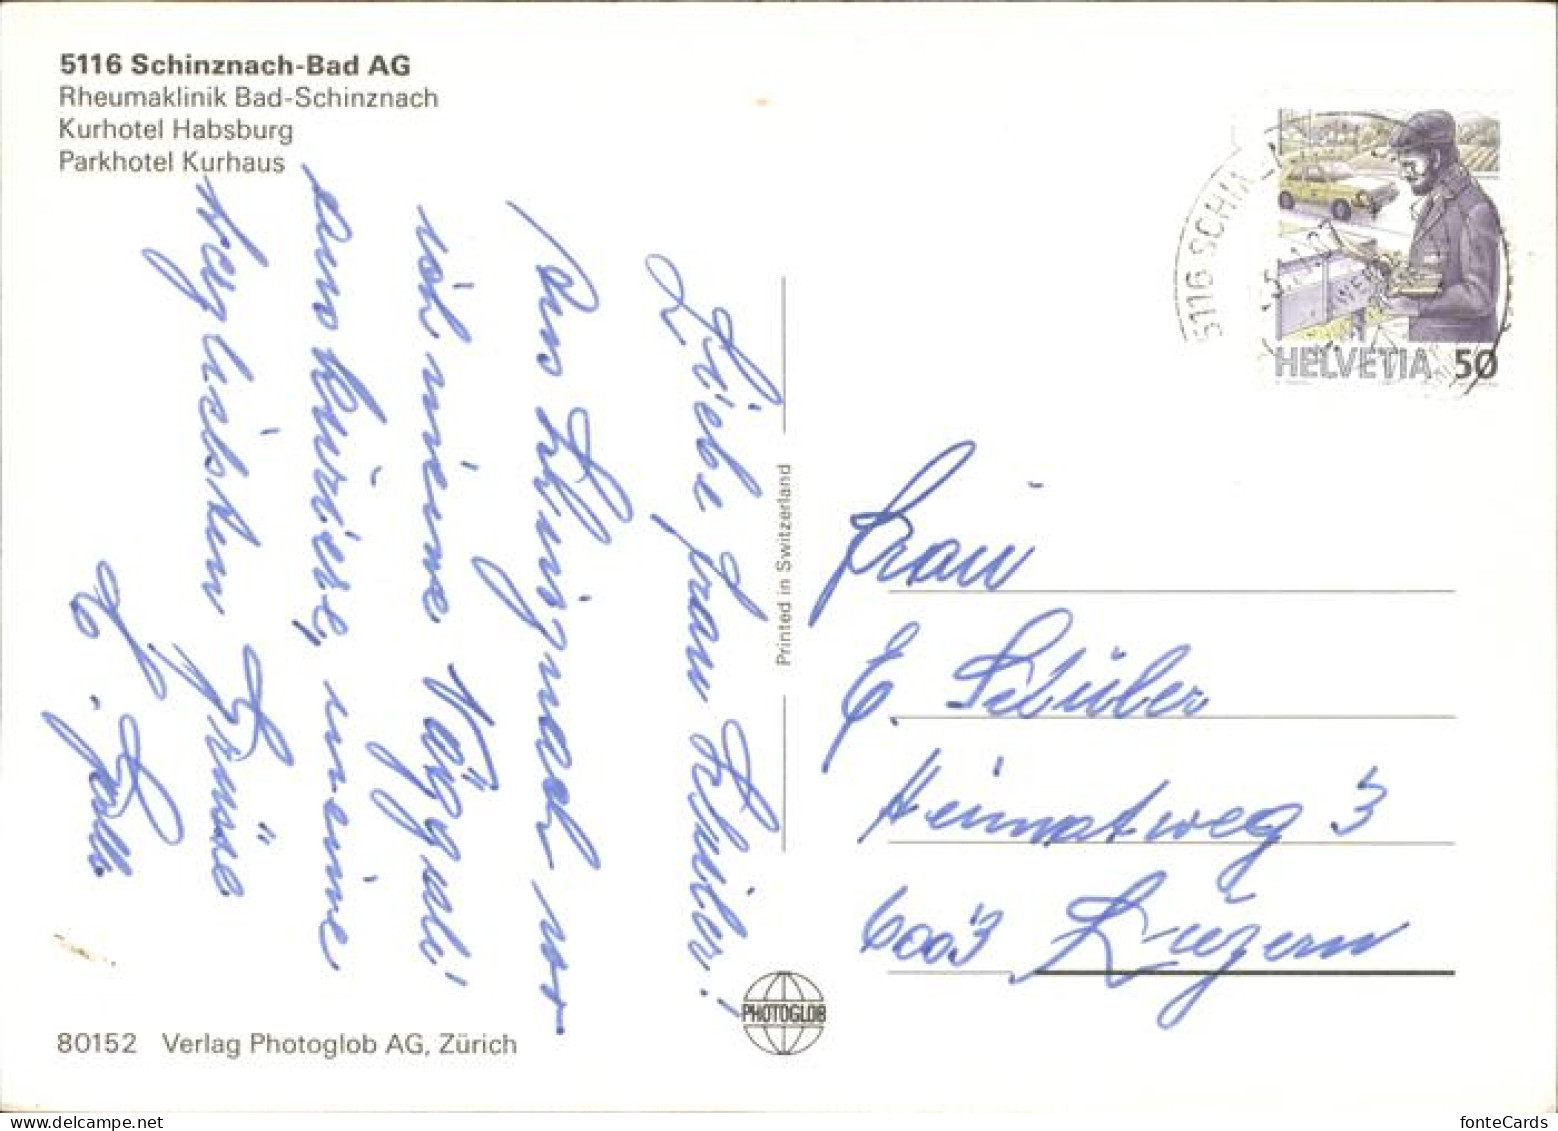 5116 Schinznach-Bad AG
Rheumaklinik Bad-Schinznach
Kurhotel Habsburg
Parkhotel Kurhaus
Liebe Frau Stuber!
Aus Schinznach wo
ich meine
auskuriere, meine
herzlichsten Grüsse
80152 Verlag Photoglob AG, Zürich
Printed in Switzerland
PHOTOGLOB
5116 SCHINZ
HELVETIA 50
Frau
E. Stuber
Heimatweg 3
6003 Luzern
fonteCards